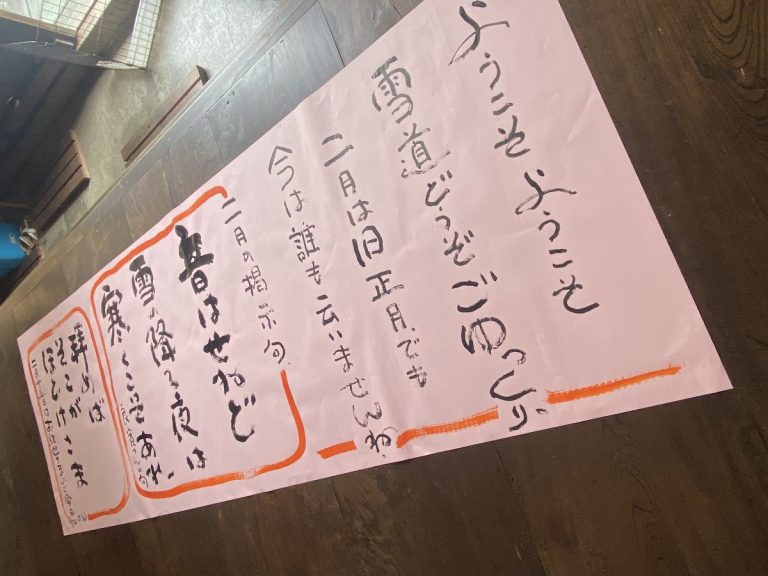 ようこそ ようこそ
雪道どうぞごゆっくり
二月は旧正月でも
今は誰も云いませんね
二月の掲示句
音はせねど
雪の降る夜は
寒くこそあれ
拝めば
そこが
ほとけさま